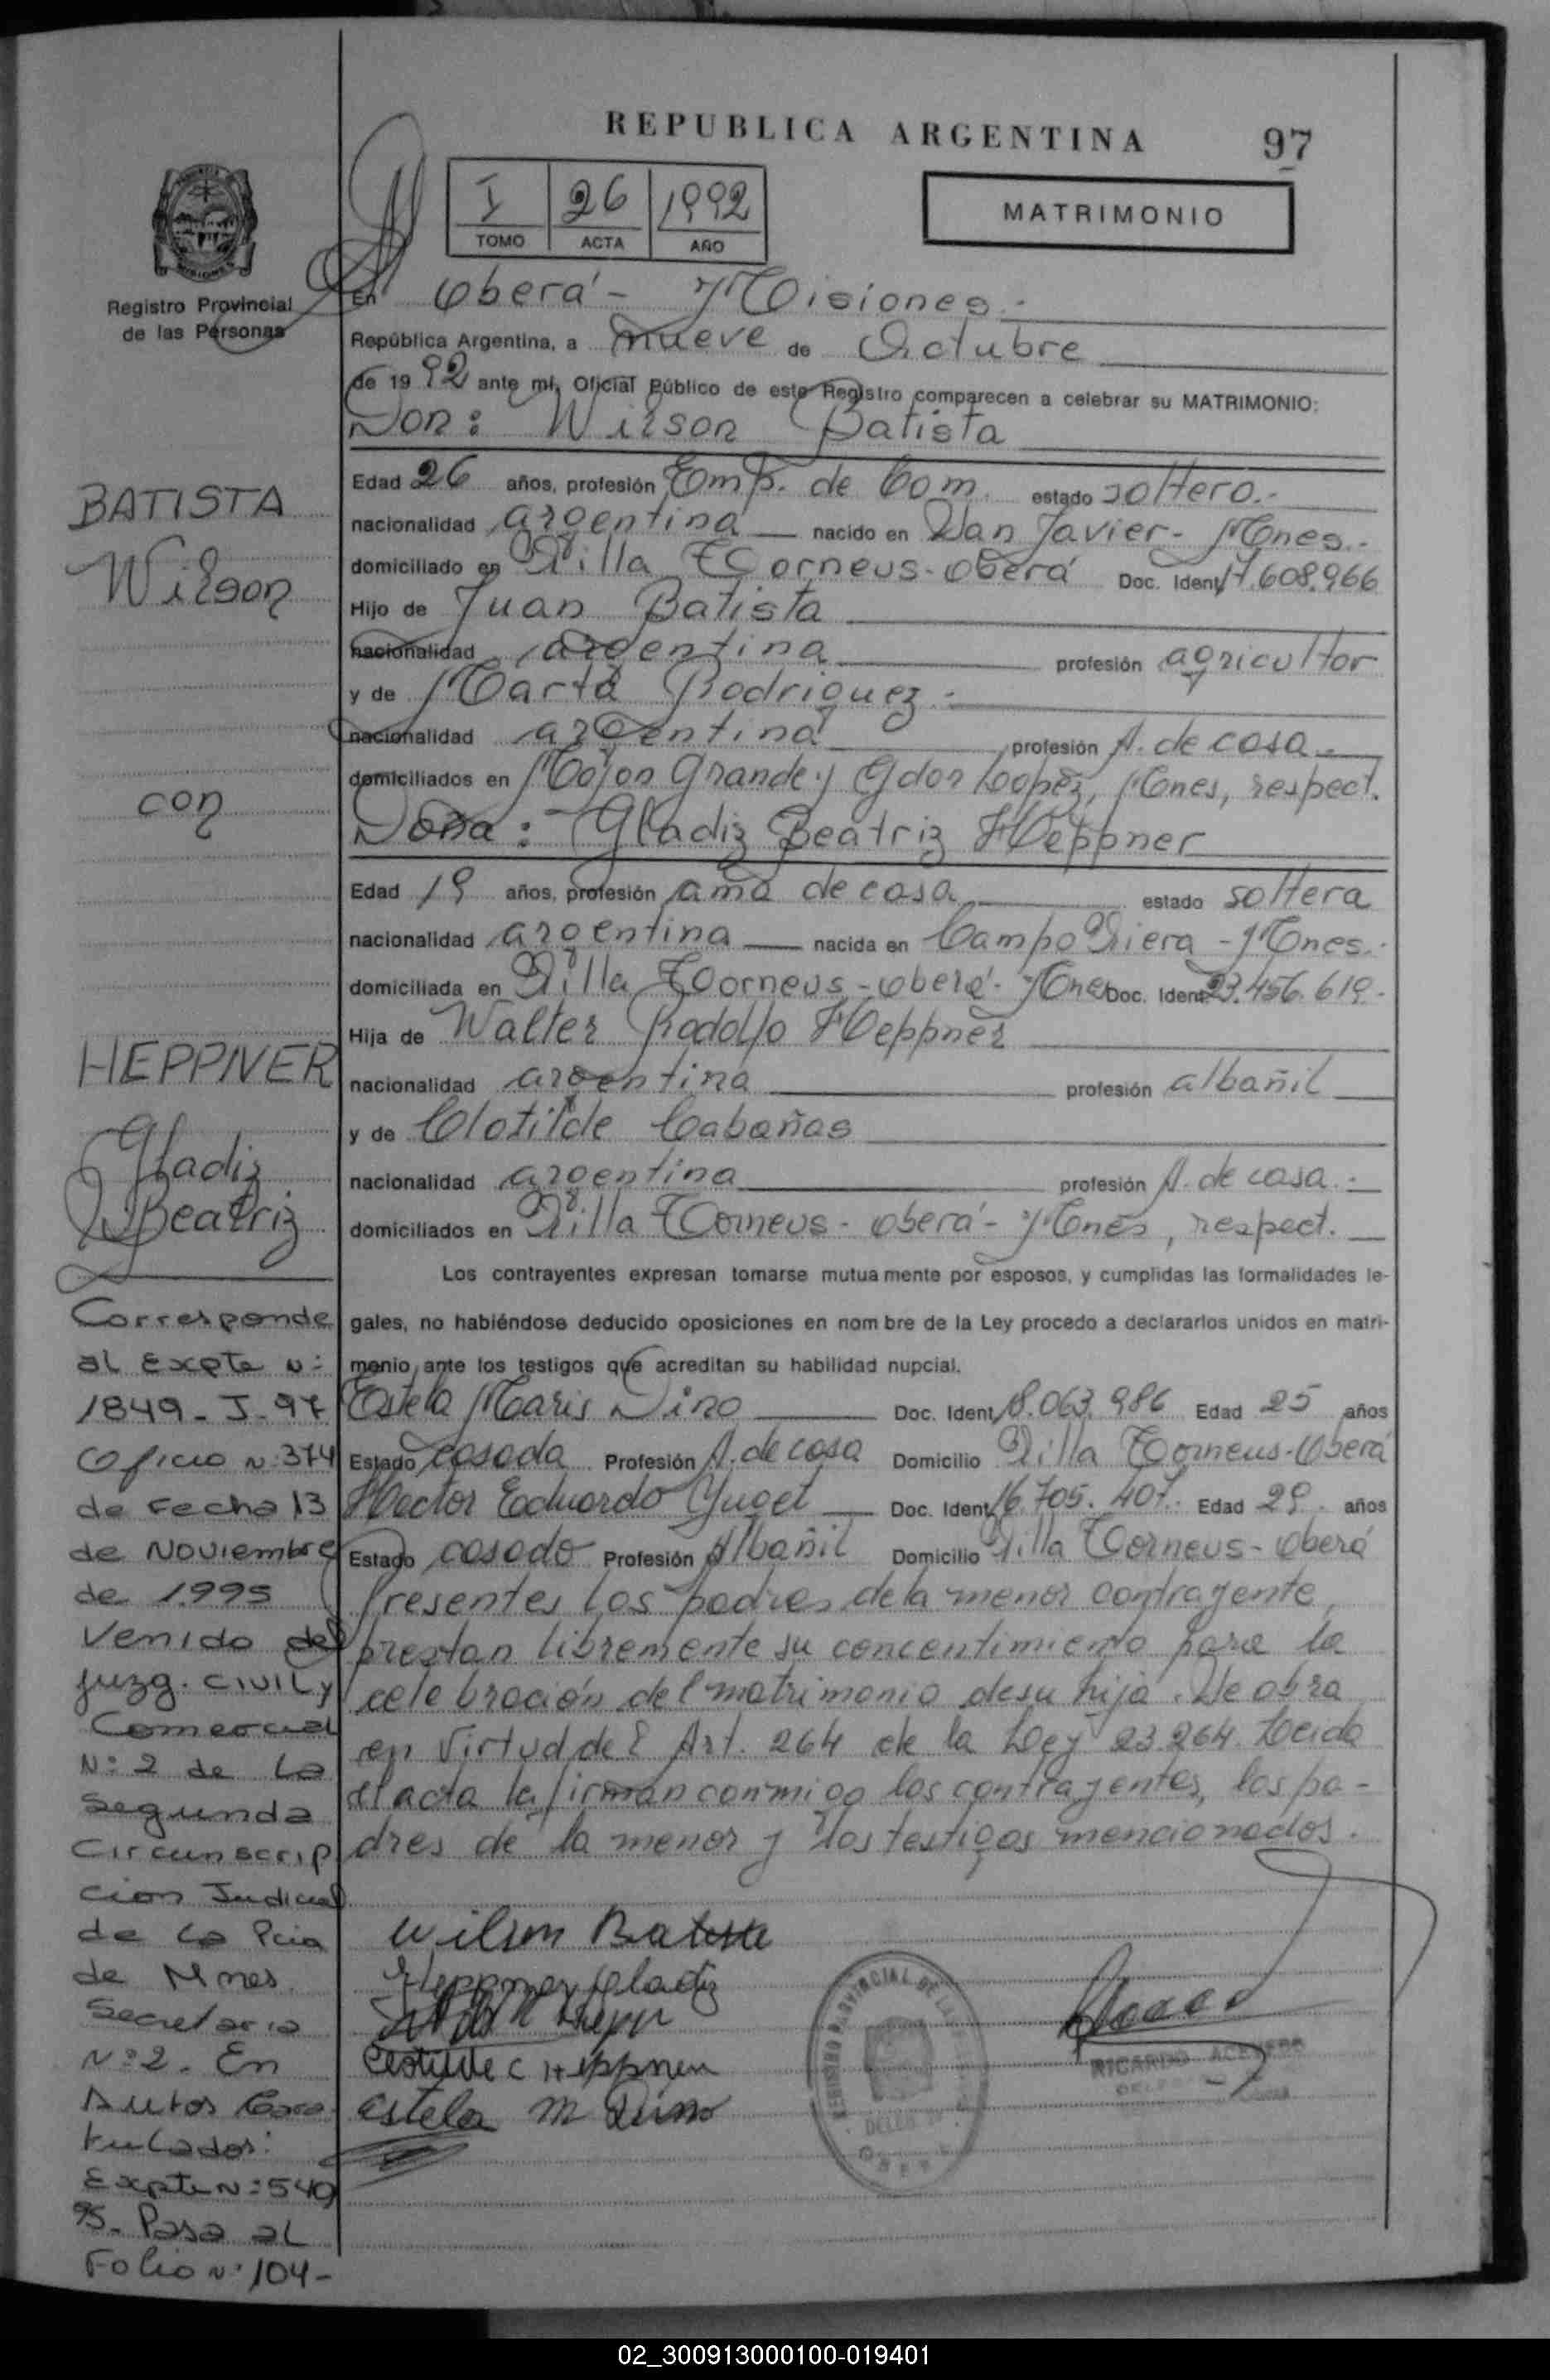 REPUBLICA ARGENTINA 97
I 26 1992
TOMO ACTA AÑO
MATRIMONIO
Registro Provincial
de las Personas
En Oberá - Misiones.-
República Argentina, a nueve de Octubre
de 1992 ante mí, Oficial Público de este Registro comparecen a celebrar su MATRIMONIO:
Don: Wilson Batista
Edad 26 años, profesión Emp. de Com. estado soltero.-
nacionalidad argentina nacido en San Javier - Mnes.-
domiciliado en Villa Torneus - Oberá Doc. Ident. 17.608.966
Hijo de Juan Batista
nacionalidad argentina profesión agricultor
y de Marta Rodriguez.-
nacionalidad argentina profesión A. de casa.-
domiciliados en Mojon Grande y Gdor Lopez, Mnes, respect.
Doña: Gladiz Beatriz Heppner
Edad 19 años, profesión ama de casa estado soltera
nacionalidad argentina nacida en Campo Viera - Mnes.-
domiciliada en Villa Torneus - Oberá - Mnes Doc. Ident. 23.456.619.-
Hija de Walter Rodolfo Heppner
nacionalidad argentina profesión albañil
y de Clotilde Cabañas
nacionalidad argentina profesión A. de casa.-
domiciliados en Villa Torneus - Oberá - Mnes, respect.
Los contrayentes expresan tomarse mutua mente por esposos, y cumplidas las formalidades le-
gales, no habiéndose deducido oposiciones en nom bre de la Ley procedo a declararlos unidos en matri-
monio, ante los testigos que acreditan su habilidad nupcial.
Estela Maris Dino Doc. Ident. 18.063.986 Edad 25 años
Estado casada Profesión A. de casa Domicilio Villa Torneus - Oberá
Hector Eduardo Yuget Doc. Ident. 16.705.407.- Edad 29 años
Estado casado Profesión Albañil Domicilio Villa Torneus - Oberá
Presentes los padres de la menor contrayente,
prestan libremente su concentimiento para la
celebración del matrimonio de su hija. Se obra
en Virtud del Art. 264 de la Ley 23.264. Leida
el acta la firman conmigo los contrayentes, los pa-
dres de la menor y los testigos mencionados.
Wilson Batista
Heppner Gladiz
Clotilde C Heppner
Estela M Dino
RICARDO ACEVEDO
BATISTA
Wilson
con
HEPPNER
Gladiz
Beatriz
Corresponde
al Expte N:
1849-J-97
Oficio N: 374
de Fecha 13
de Noviembre
de 1.995
Venido del
Juzg. Civil y
Comercial
N: 2 de La
Segunda
Circunscrip
cion Judicial
de La Pcia
de Mnes.
Secretaria
N: 2. En
Autos Cara-
tulados:
Expte N: 540/
95. Pasa al
Folio N: 104-
02_300913000100-019401